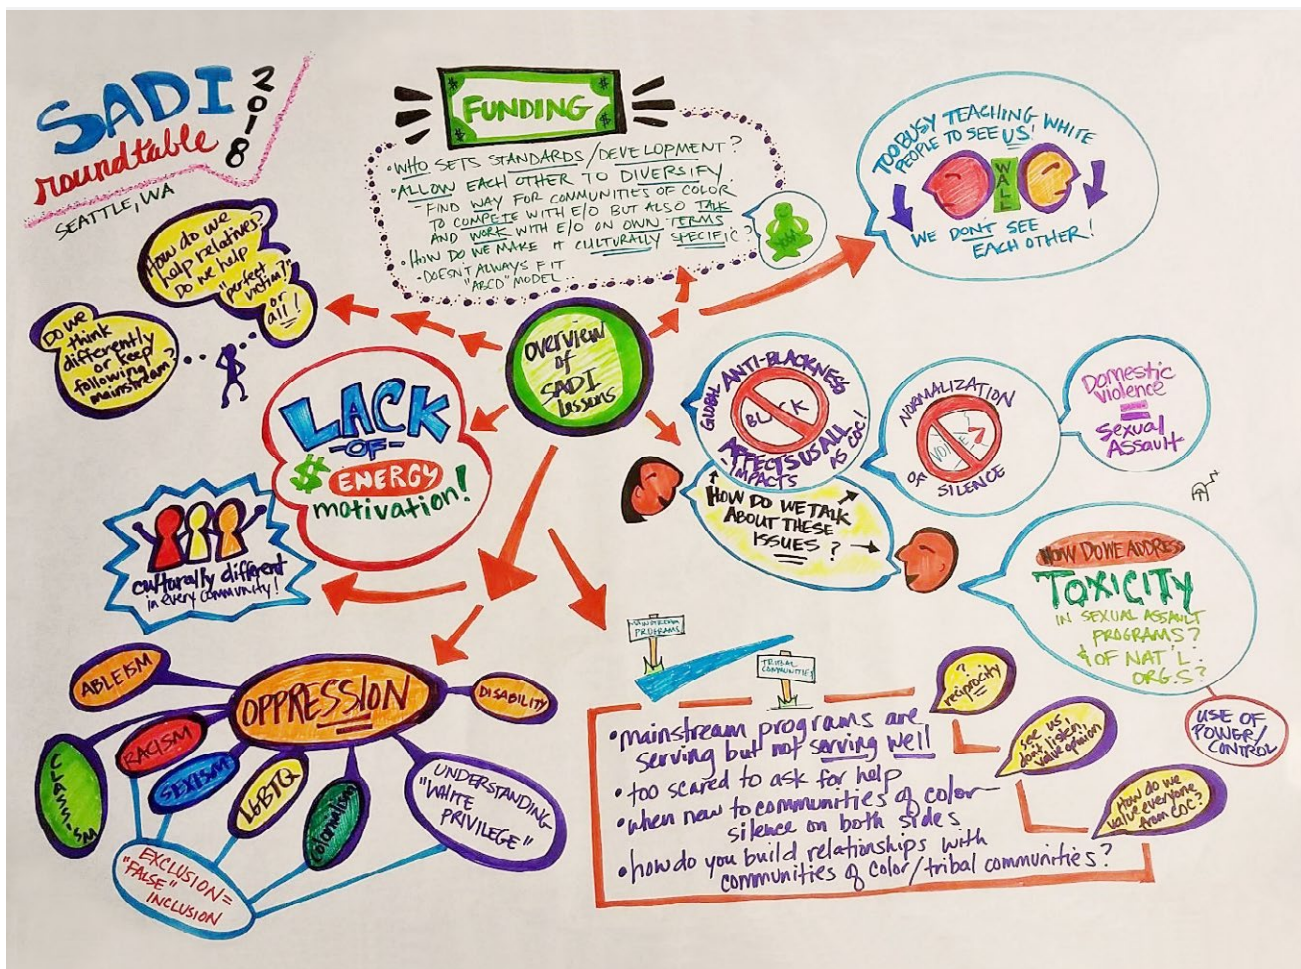 SADI
roundtable
2018
SEATTLE, WA
$ $
FUNDING
$ $
• WHO SETS STANDARDS/DEVELOPMENT?
• ALLOW EACH OTHER TO DIVERSIFY.
- FIND WAY FOR COMMUNITIES OF COLOR
TO COMPETE WITH E/O BUT ALSO TALK
AND WORK WITH E/O ON OWN TERMS
• HOW DO WE MAKE IT CULTURALLY SPECIFIC?
- DOESN'T ALWAYS FIT
"ABCD" MODEL
TOO BUSY TEACHING WHITE
PEOPLE TO SEE US!
WALL
WE DON'T SEE
EACH OTHER!
How do we
help relatives?
Do we help
"perfect
victim?"
or
all!
Do we
think
differently
or keep
following
mainstream?
overview
of
SADI
lessons
LACK
-OF-
$ ENERGY
motivation!
GLOBAL ANTI-BLACKNESS
BLACK
AFFECTS US ALL
IMPACTS AS COC!
NORMALIZATION
VOICE
OF SILENCE
Domestic
violence
=
Sexual
Assault
HOW DO WE TALK
ABOUT THESE
ISSUES?
HOW DO WE ADDRESS
TOXICITY
IN SEXUAL ASSAULT
PROGRAMS?
& OF NAT'L.
ORG.S?
USE OF
POWER/
CONTROL
culturally different
in every community!
OPPRESSION
ABLEISM
DISABILITY
CLASSISM
RACISM
SEXISM
LGBTQ
Colonialism
UNDERSTANDING
"WHITE
PRIVILEGE"
EXCLUSION =
"FALSE"
INCLUSION
MAINSTREAM
PROGRAMS
TRIBAL
COMMUNITIES
• mainstream programs are
serving but not serving well
• too scared to ask for help
• when new to communities of color-
silence on both sides
• how do you build relationships with
communities of color/tribal communities?
?
reciprocity
see us,
don't listen,
value opinion
How do we
value everyone
from COC?